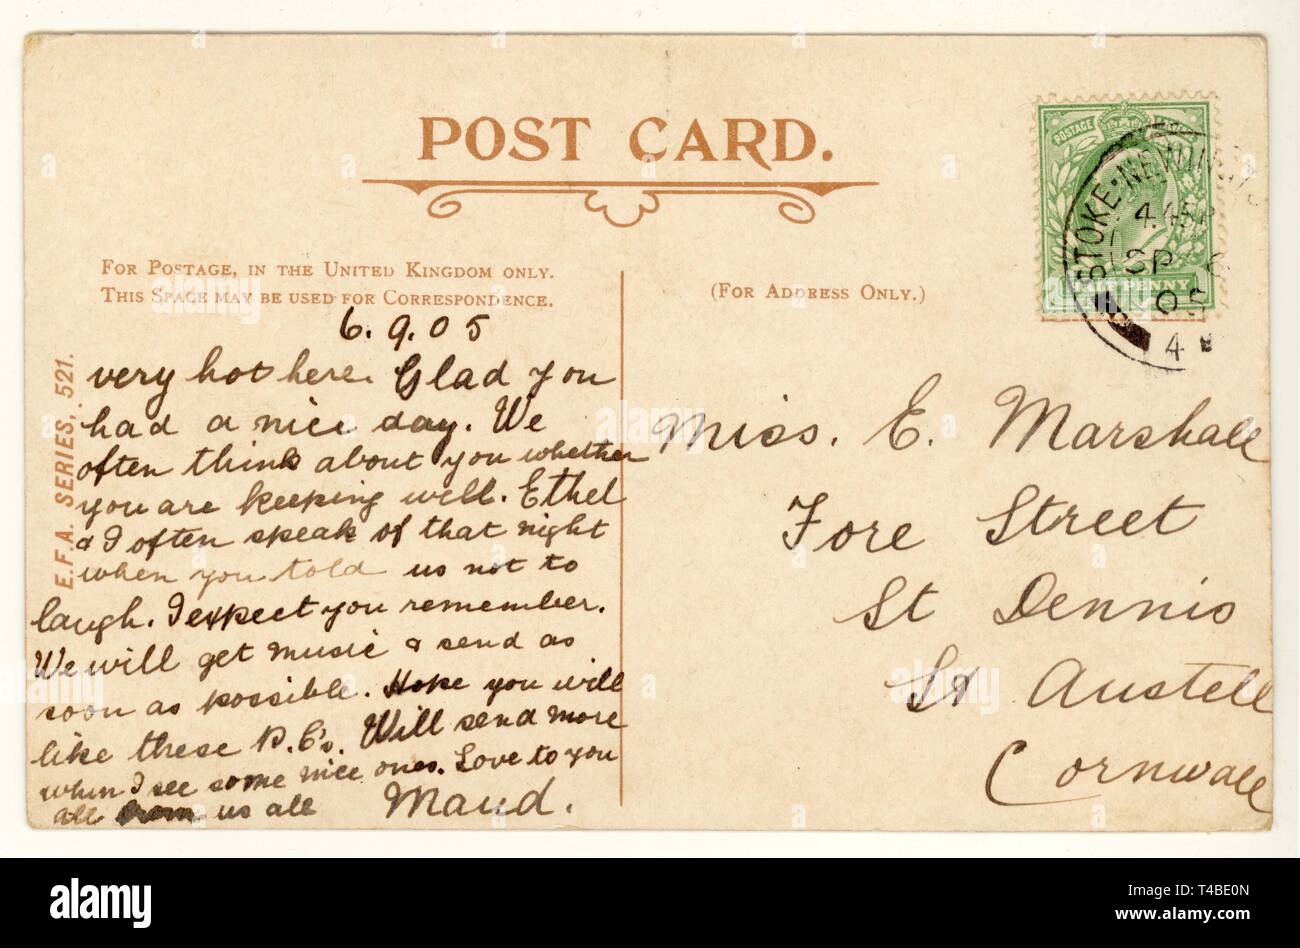 POST CARD.
FOR POSTAGE, IN THE UNITED KINGDOM ONLY.
THIS SPACE MAY BE USED FOR CORRESPONDENCE.
(FOR ADDRESS ONLY.)
E.F.A. SERIES, 521.
6.9.05
very hot here. Glad you
had a nice day. We
often think about you whether
you are keeping well. Ethel
& I often speak of that night
when you told us not to
laugh. I expect you remember.
We will get music & send as
soon as possible. Hope you will
like these P.C's. Will send more
when I see some nice ones. Love to you
all from us all Maud.
POSTAGE
HALF PENNY
STOKE·NEWINGTO
4.45P
SP 6
05
4
Miss. E. Marshall
Fore Street
St Dennis
St Austell
Cornwall
alamy
Image ID: T4BE0N
www.alamy.com